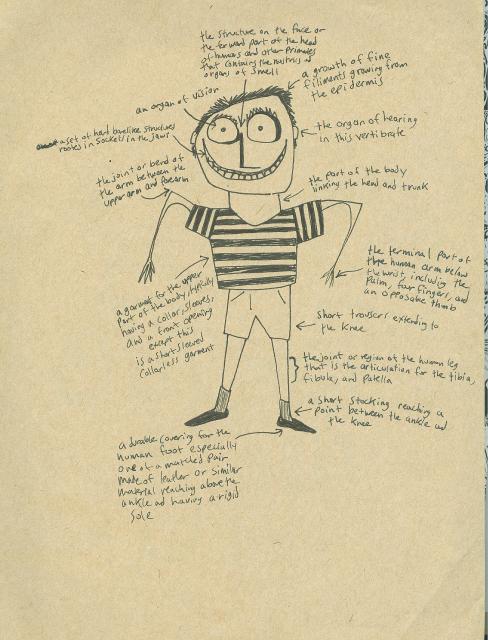 the structure on the face or
the forward part of the head
of humans and other primates
that contains the nostrils &
organs of smell
a growth of fine
filiments growing from
the epidermis
an organ of vision
a set of hard bonelike structures
rooted in sockets in the jaws
the organ of hearing
in this vertibrate
the joint or bend of
the arm between the
upper arm and forearm
the part of the body
linking the head and trunk
the terminal part of
the human arm below
the wrist, including the
palm, four fingers, and
an opposable thumb
a garment for the upper
part of the body, typically
having a collar, sleeves,
and a front opening
except this
is a short sleeved
collarless garment
short trousers extending to
the knee
the joint or region of the human leg
that is the articulation for the tibia,
fibula, and patella
a short stocking reaching a
point between the ankle and
the knee
a durable covering for the
human foot especially
one of a matched pair
made of leather or similar
material reaching above the
ankle and having a rigid
sole